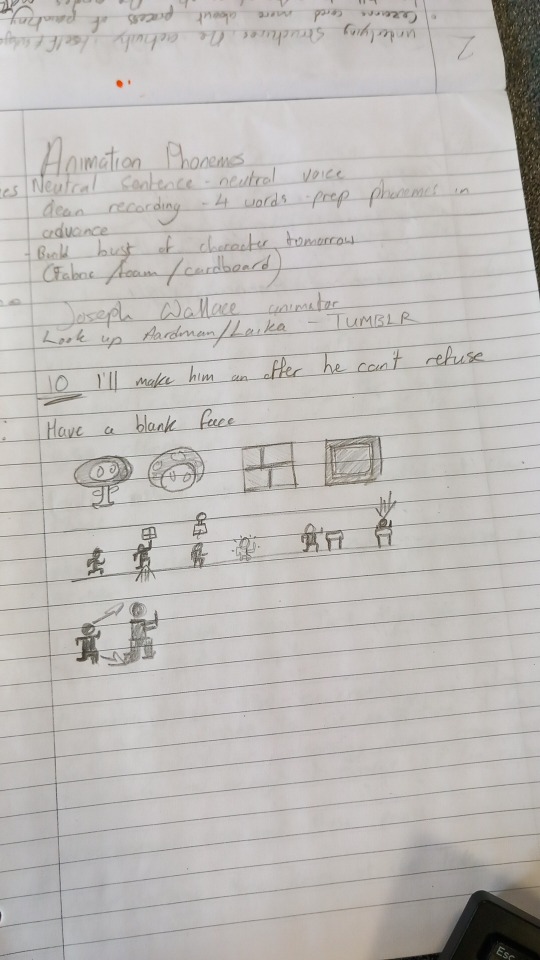 2
underlying structures the activity itself
concern and more about process of painting
Animation Phonemes
es Neutral Sentence - neutral voice
clean recording - 4 words - prep phonemes in
advance
- Build bust of character tomorrow
(Fabric / foam / cardboard)
Joseph Wallace animator
Look up Aardman/Laika - TUMBLR
10 I'll make him an offer he can't refuse
Have a blank face
Esc